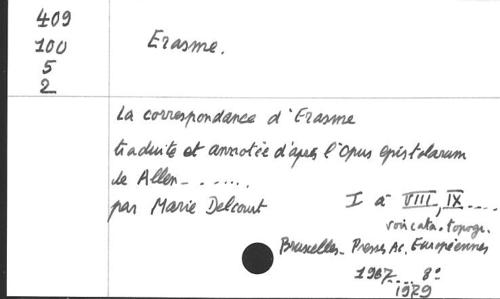 409
100
5
2
Erasme.
La correspondance d'Erasme
traduite et annotée d'après l'Opus epistolarum
de Allen - . . . . . .
par Marie Delcourt
I à VIII, IX . . . .
voir cata. topogr.
Bruxelles - Presses Ac. Européennes
1967 . . . . 8°
1979